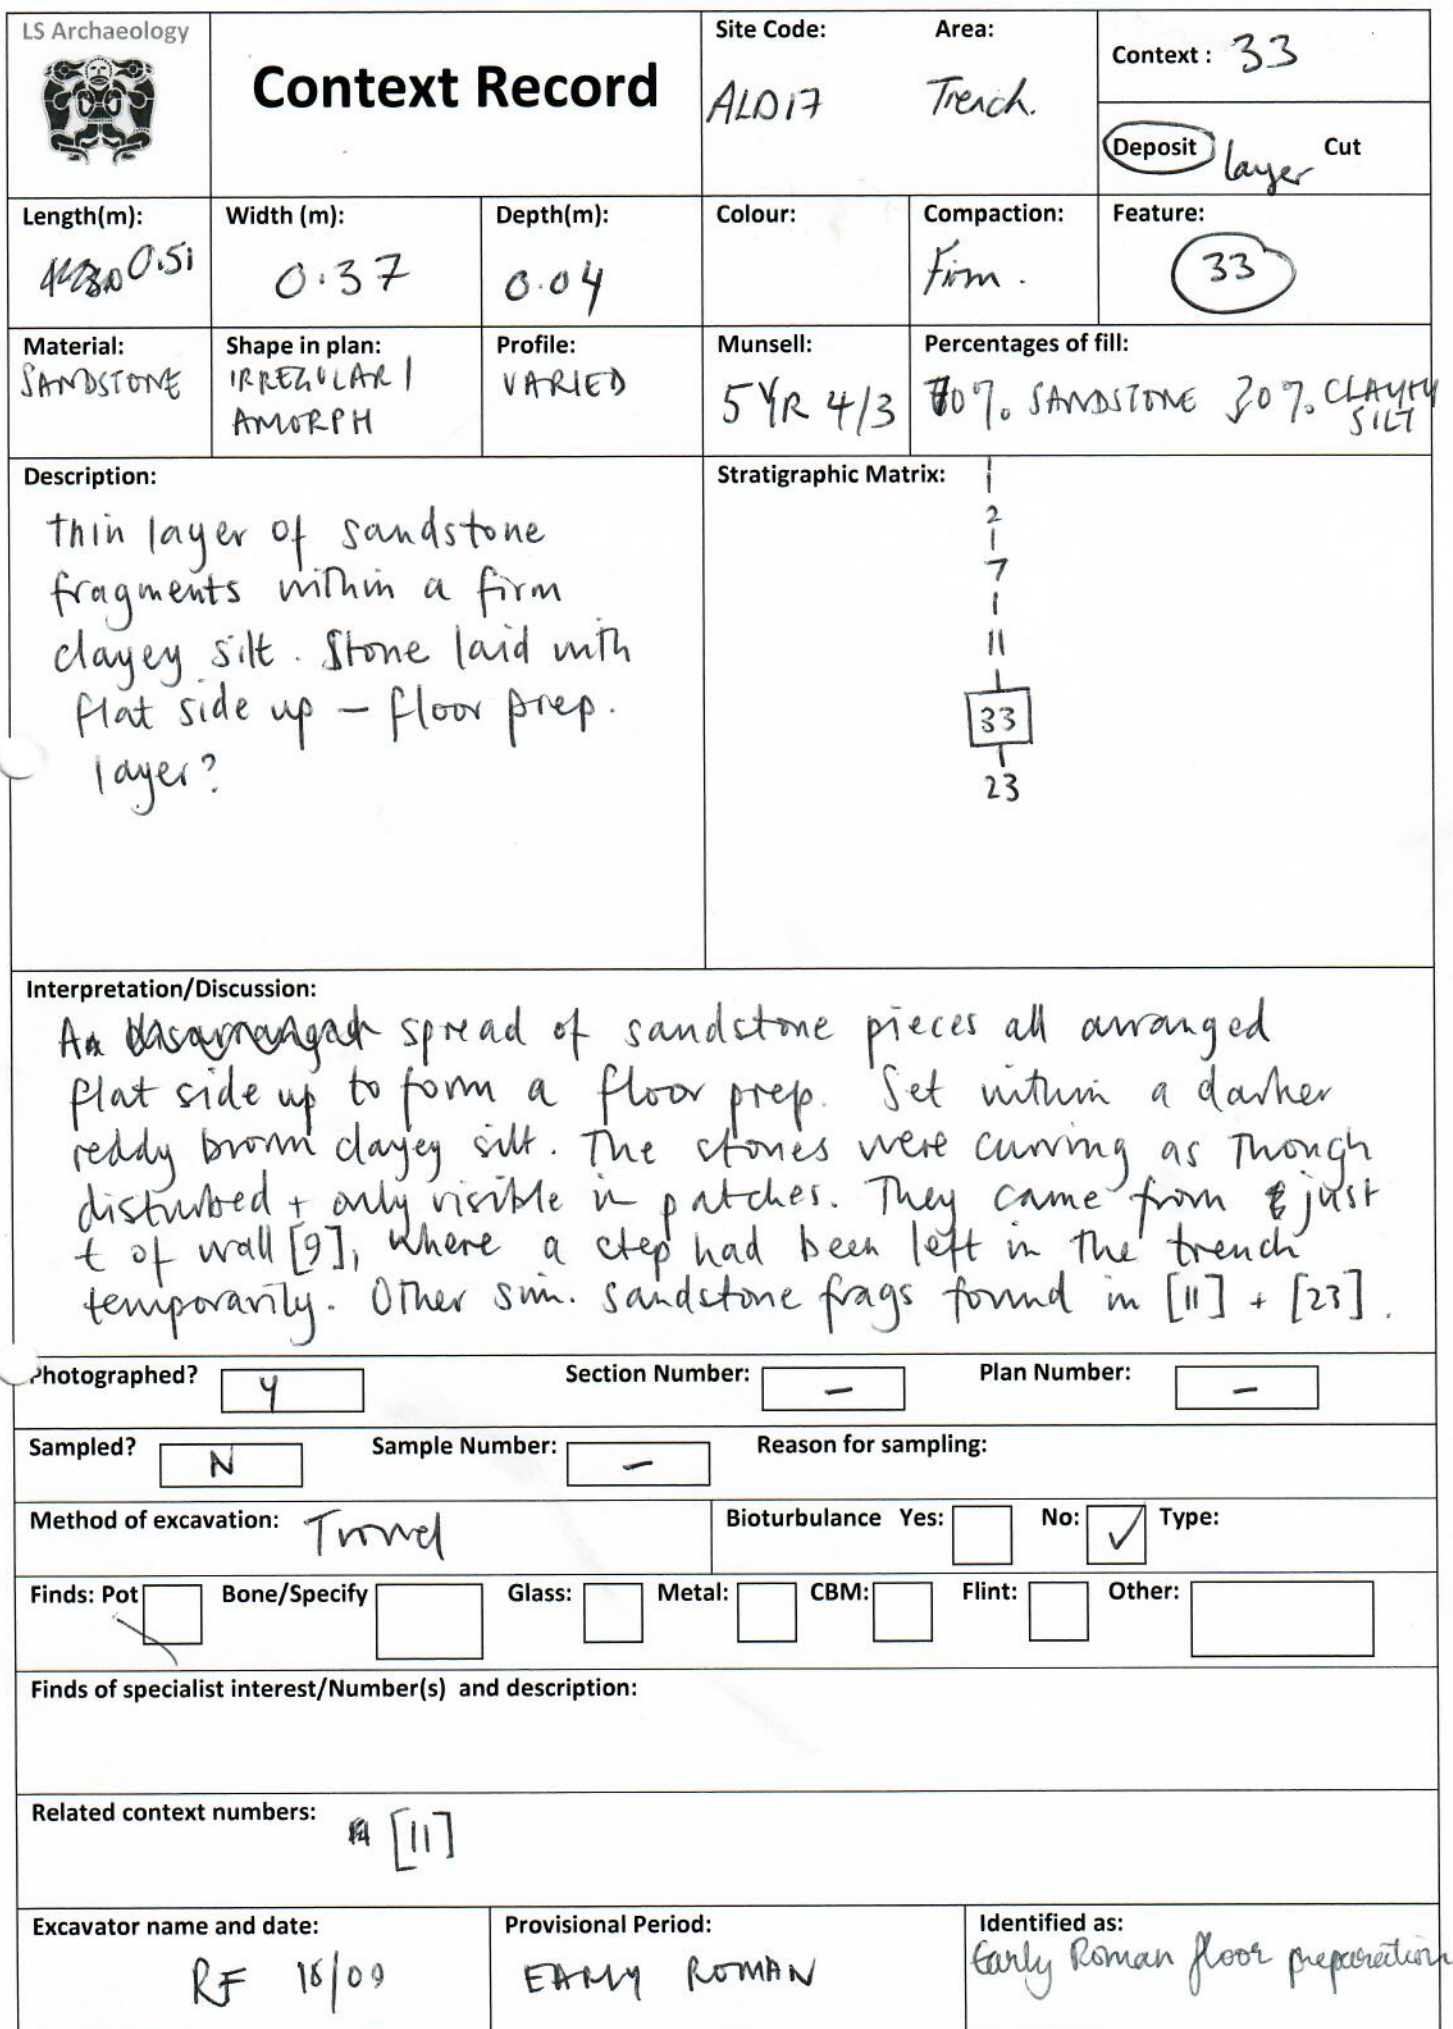 LS Archaeology
Context Record
Site Code:
ALD17
Area:
Trench.
Context: 33
Deposit layer Cut
Length(m):
0.51
Width (m):
0.37
Depth(m):
0.04
Colour:
Compaction:
Firm.
Feature:
33
Material:
SANDSTONE
Shape in plan:
IRREGULAR /
AMORPH
Profile:
VARIED
Munsell:
5YR 4/3
Percentages of fill:
70% SANDSTONE 30% CLAYEY
SILT
Description:
Thin layer of sandstone
fragments within a firm
clayey silt. Stone laid with
flat side up – floor prep.
layer?
Stratigraphic Matrix:
1
2
7
11
33
23
Interpretation/Discussion:
A spread of sandstone pieces all arranged
flat side up to form a floor prep. Set within a darker
reddy brown clayey silt. The stones were curving as though
disturbed + only visible in patches. They came from just
of wall [9], where a step had been left in the trench
temporarily. Other sim. sandstone frags found in [11] + [23].
Photographed? Y
Section Number: –
Plan Number: –
Sampled? N
Sample Number: –
Reason for sampling:
Method of excavation: Trowel
Bioturbulance Yes: No: ✓ Type:
Finds: Pot Bone/Specify Glass: Metal: CBM: Flint: Other:
Finds of specialist interest/Number(s) and description:
Related context numbers: [11]
Excavator name and date:
RF
Provisional Period:
EARLY ROMAN
Identified as:
Early Roman floor preparation